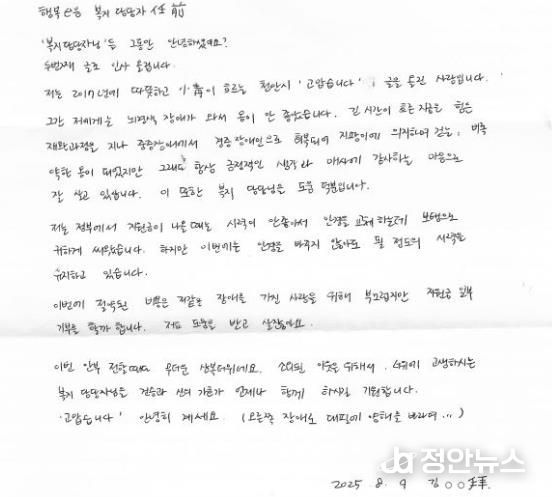 행복e음 복지 담당자 任 前
'복지담당자님'들 그동안 안녕하셨어요?
두번째 글로 인사 올립니다.
저는 2017년에 따뜻하고 이 흐르는 천안시 '고맙습니다' 글을 올린 사람입니다.
그간 저에게는 뇌경색 장애가 와서 몸이 안 좋았습니다. 긴 시간이 흐른 지금은 힘든
재활과정을 지나 중증장애에서 경증장애인으로 회복되어 지팡이에 의지하여 걷는, 비록
약한 몸이 되었지만 그래도 항상 긍정적인 생각과 매사에 감사하는 마음으로
잘 살고 있습니다. 이 또한 복지 담당님들 도움 덕분입니다.
저는 정부에서 지원금이 나올 때는 시력이 안좋아서 안경을 교체 하는데 보탬으로
귀하게 씌워졌습니다. 하지만 이번에는 안경을 바꾸지 않아도 될 정도의 시력을
유지하고 있습니다.
이번에 절약된 비용은 저같은 장애를 가진 사람을 위해 부끄럽지만 지원금 일부
기부를 할까 합니다. 저도 도움을 받고 살잖아요.
이번 안부 전할때는 무더운 삼복더위에요. 소외된 이웃을 위해서, 더위에 고생하시는
복지 담당자님들 건승과 신의 가호가 언제나 함께 하시길 기원합니다.
'고맙습니다' 안녕히 계세요. (오른쪽 장애로 대필에 양해를 바라며...)
2025 8. 9 김○○拜.
정안뉴스